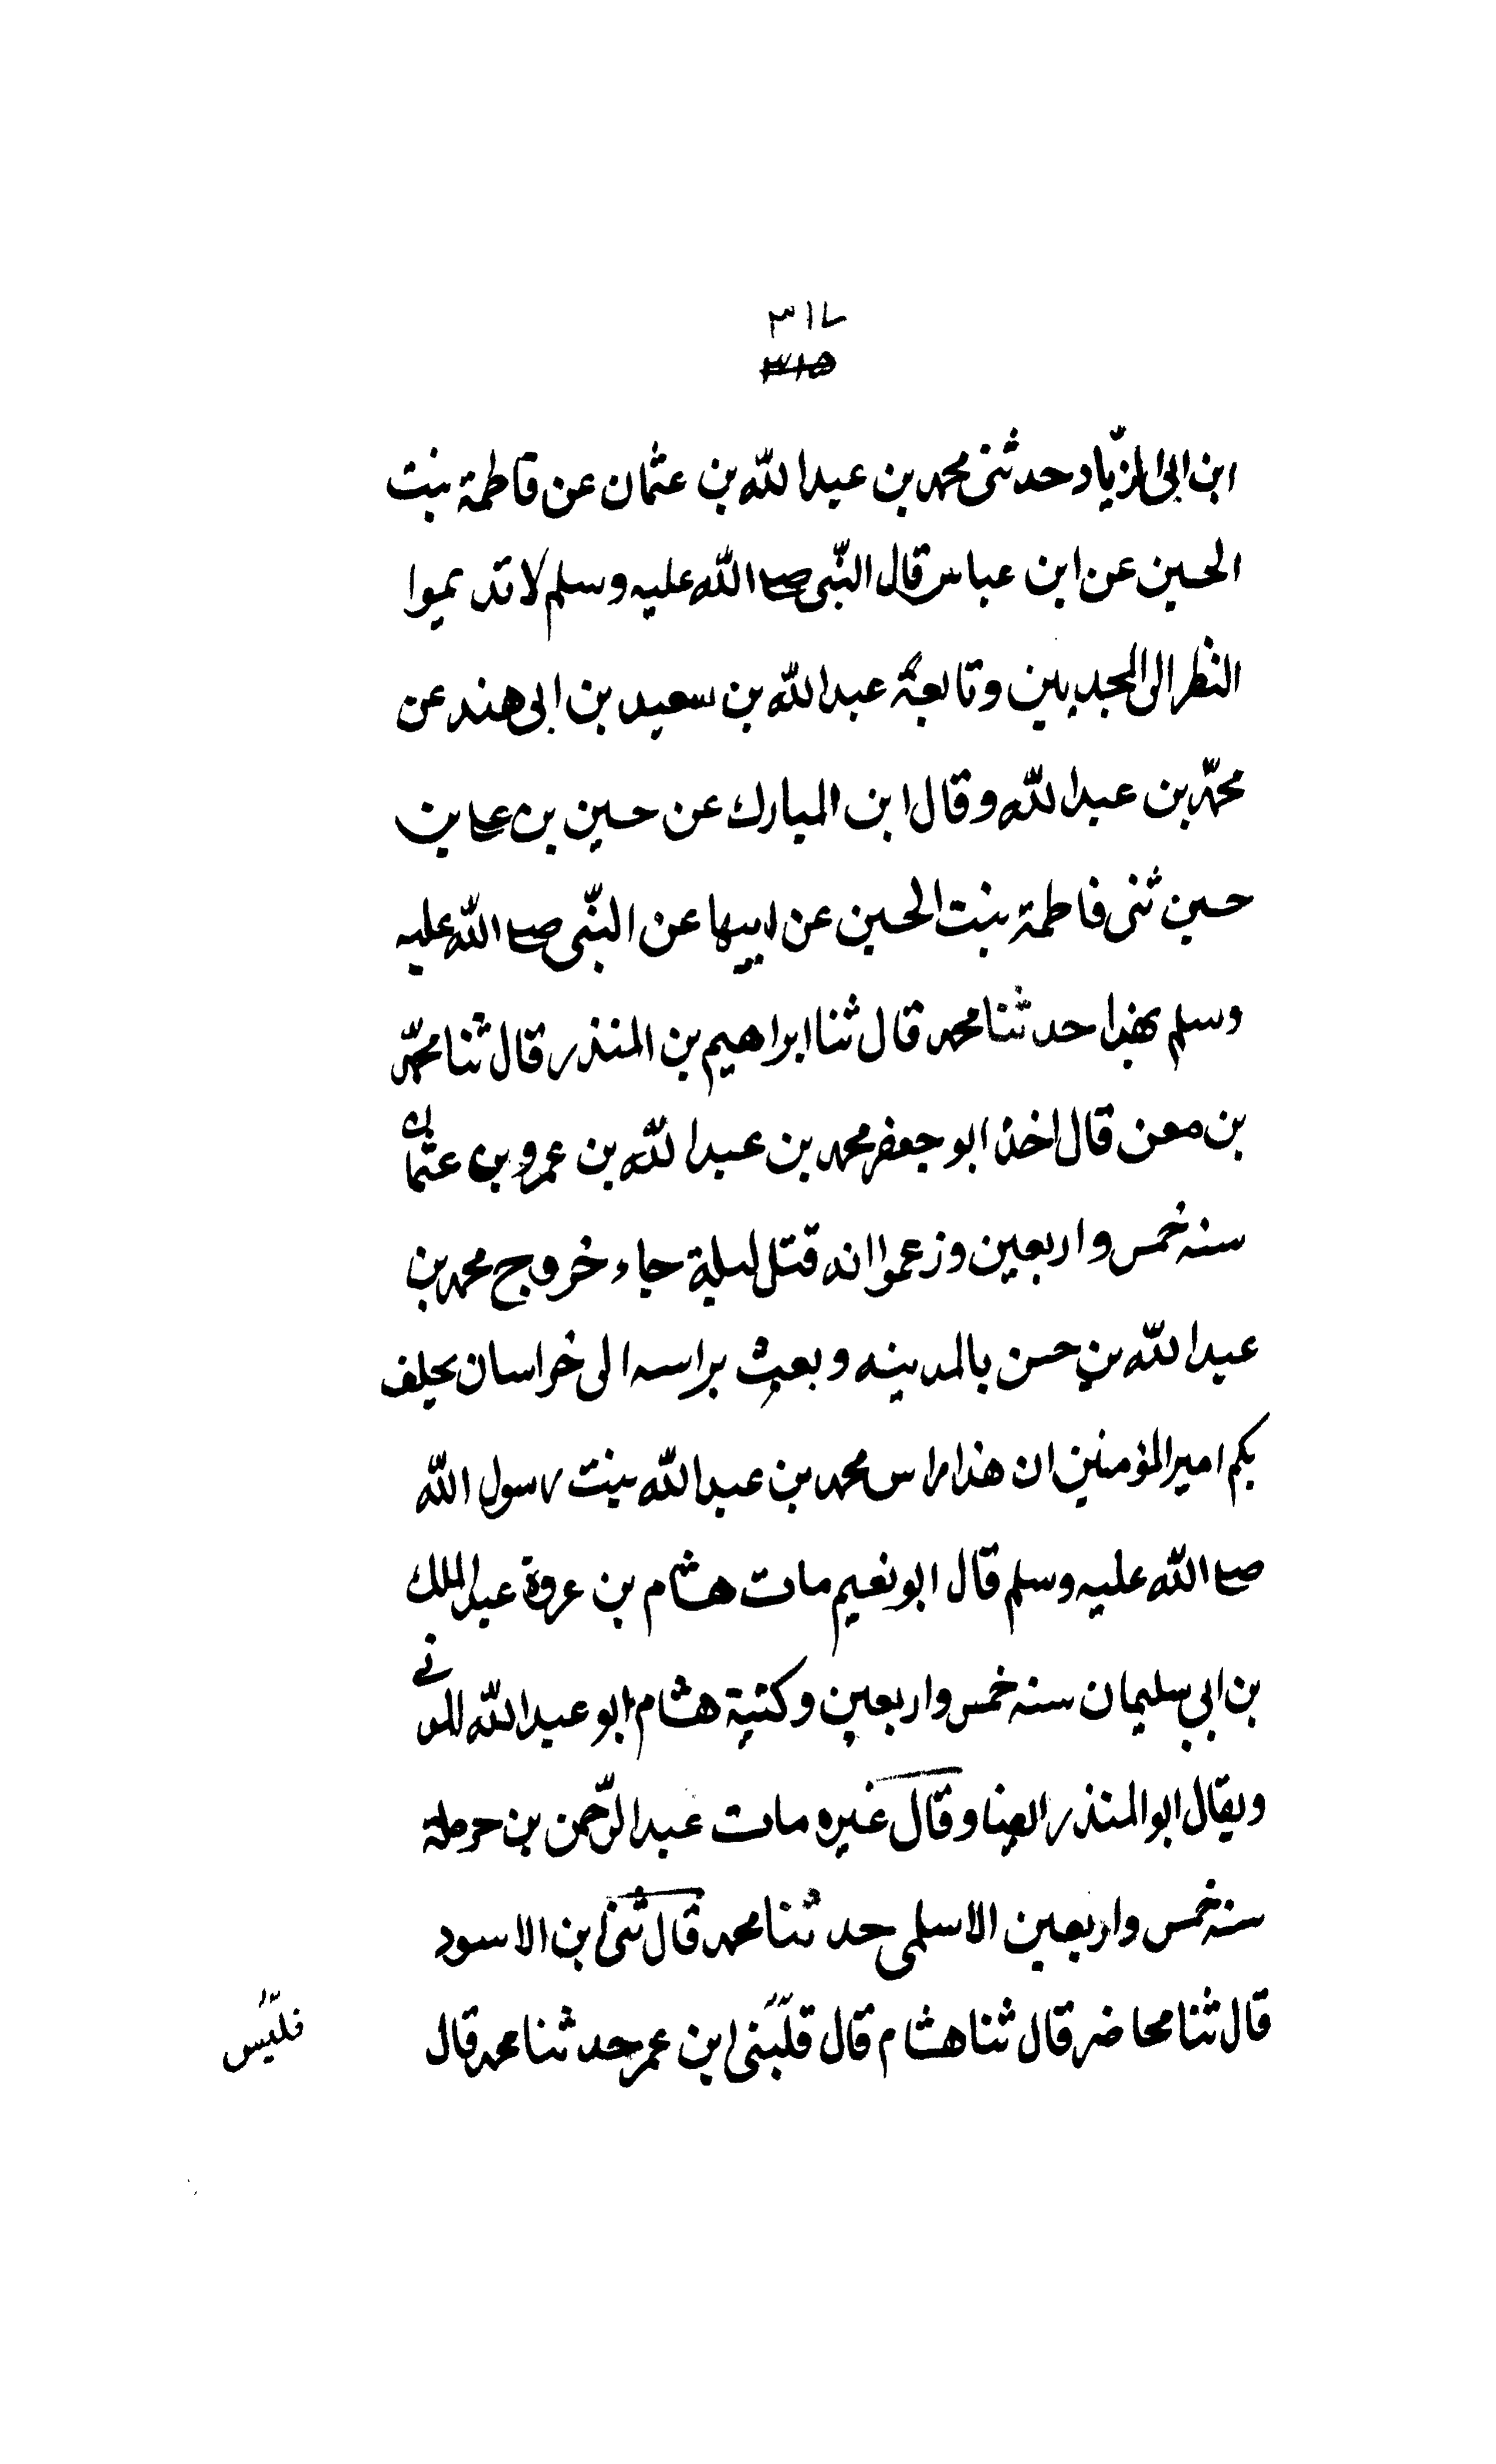 ٣١٦
٣١٥
ابن ابى الزياد حدثنى محمد بن عبد الله بن عثمان عن فاطمة بنت
الحسين عن ابن عباس قال النبى صلى الله عليه وسلم لا تديموا
النظر الى المجذمين وتابعة عبد الله بن سعيد بن ابى هند عن
محمد بن عبد الله وقال ابن المبارك عن حسين بن على بن
حسين ثنى فاطمة بنت الحسين عن ابيها عن النبى صلى الله عليه
وسلم بهذا حدثنا محمد قال ثنا ابراهيم بن المنذر قال ثنا محمد
بن معن قال اخذ ابو جعفر محمد بن عبد الله بن عمرو بن عثمان
سنه خمس واربعين وزعموا انه قتل ليلة جاء خروج محمد بن
عبد الله بن حسن بالمدينه وبعث براسه الى خراسان يحلف
بكم امير المؤمنين ان هذا راس محمد بن عبد الله بنت رسول الله
صلى الله عليه وسلم قال ابو نعيم مات هشام بن عروة عبد الملك
بن ابي سليمان سنه خمس واربعين وكنية هشام ابو عبد الله المدنى
ويقال ابو المنذر ايضا وقال غيره مات عبد الرحمن بن حرملة
سنه خمس واربعين الاسلمى حدثنا محمد قال ثنى ابن الاسود
قال ثنا محاضر قال ثنا هشام قال قلبنى ابن عمر حدثنا محمد قال